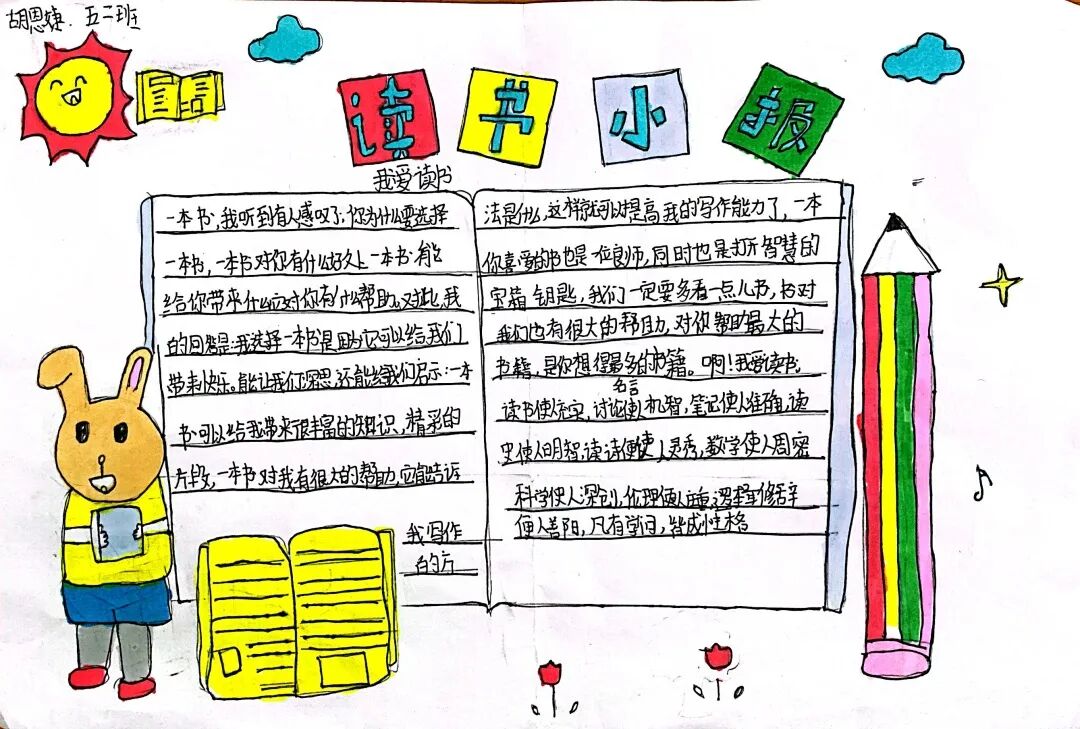 胡恩婕 五二班
读书小报
我爱读书
一本书,我听到有人感叹了:你为什么要选择
一本书,一本书对你有什么好久上一本书有能
给你带来什么应对你有什么帮助。对此,我
的回答是:我选择一本书是因为它可以给我们
带来快乐。能让我们深思,还能给我们启示:一本
书可以给我带来很丰富的知识,精彩的
片段,一本书对我有很大的帮助,它能告诉
我写作
的方
法是什么,这样就可以提高我的写作能力了,一本
你喜爱的书也是一位良师,同时也是打开智慧的
宝箱钥匙,我们一定要多看一点儿书,书对
我们也有很大的帮助,对你帮助最大的
书籍,是你想得最多的书籍。啊!我爱读书。
名言
读书使人充实,讨论使人机智,笔记使人准确,读
史使人明智,读诗使人灵秀,数学使人周密
科学使人深刻,伦理使人庄重,逻辑修辞
使人善阳,凡有学问,皆成性格